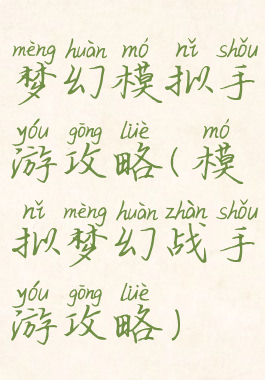 mèng huàn mó nǐ shǒu
梦幻模拟手
yóu gōng lüè mó
游攻略(模
nǐ mèng huàn zhàn shǒu
拟梦幻战手
yóu gōng lüè
游攻略)